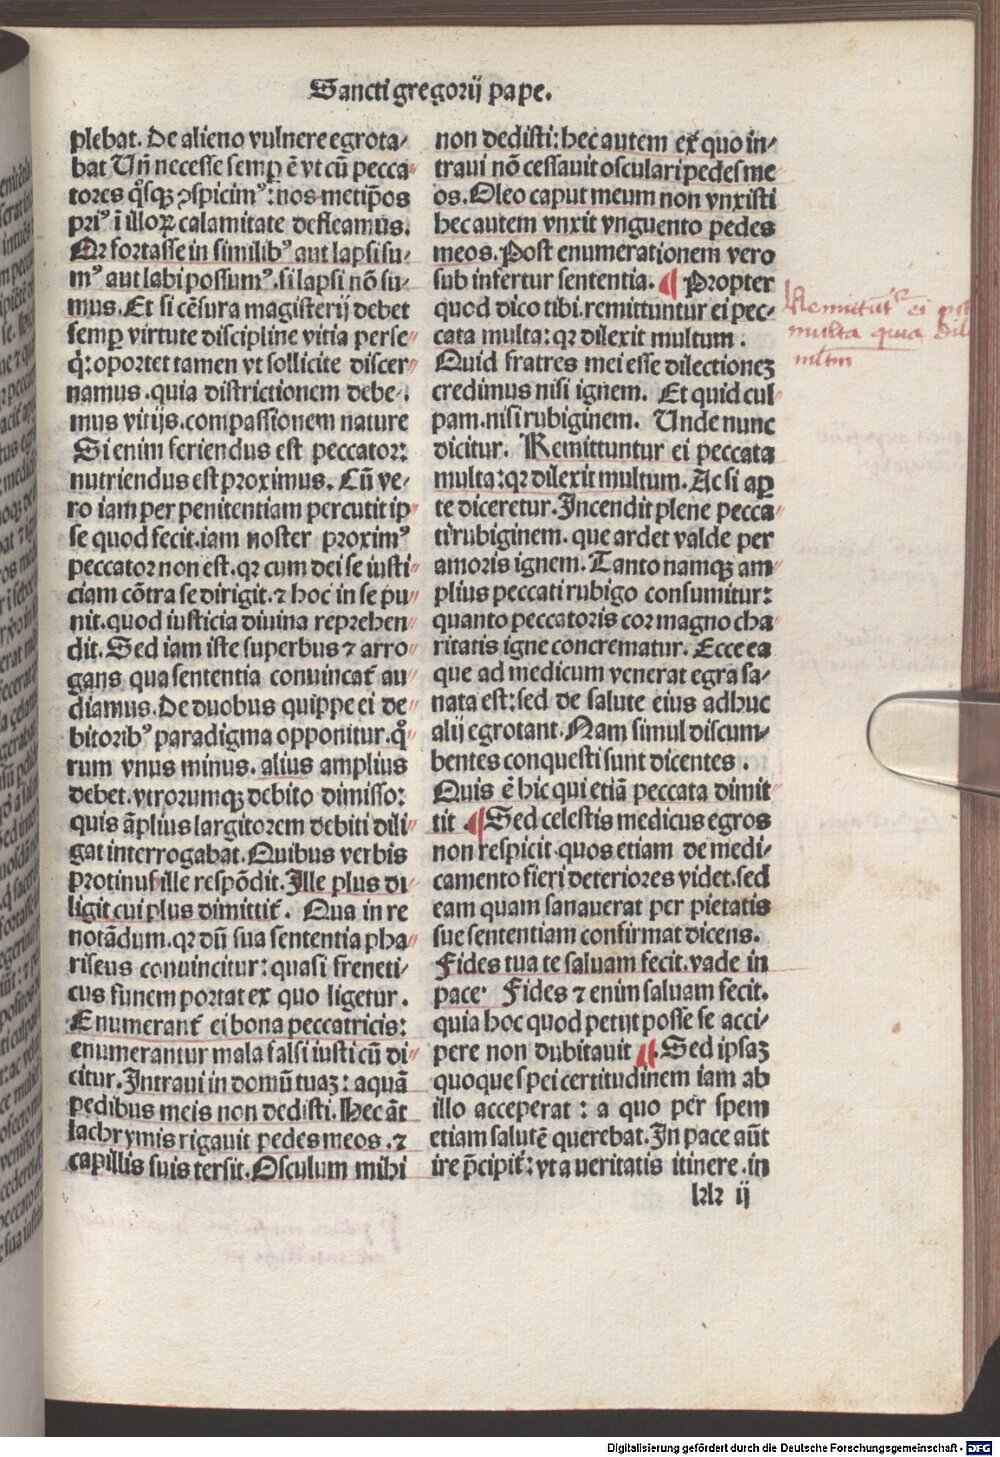 Sancti gregorij pape.
plebat. De alieno vulnere egrota/
bat Uñ necesse semꝑ ē vt cū pecca
tores qͦsqꝫ ꝯspicimꝰ: nos metip̄os
priꝰ ī illoꝝ calamitate defleamus.
Qꝛ fortasse in similibꝰ aut lapsi su/
mꝰ aut labi possumꝰ. si lapsi nō su/
mus. Et si cēsura magisterij debet
semꝑ virtute discipline vitia perse
q̄: oportet tamen vt sollicite discer
namus. quia districtionem debe/
mus vitijs. compassionem nature
Si enim feriendus est peccator:
nutriendus est proximus. Cū ve/
ro iam per penitentiam percutit ip/
se quod fecit. iam noster proximꝰ
peccator non est. qꝛ cum dei se iusti
ciam cōtra se dirigit. ⁊ hoc in se pu
nit. quod iusticia diuina reprehen
dit. Sed iam iste superbus ⁊ arro
gans qua sententia conuincat̄ au
diamus. De duobus quippe ei de
bitoribꝰ paradigma opponitur. qͦ
rum vnus minus. alius amplius
debet. vtrorumqꝫ debito dimisso:
quis āplius largitorem debiti dili
gat interrogabat. Quibus verbis
protinus ille respōdit. Ille plus di
ligit cui plus dimittit̄. Qua in re
notādum. qꝛ dū sua sententia pha
riseus conuincitur: quasi freneti/
cus funem portat ex quo ligetur.
Enumerant̄ ei bona peccatricis:
enumerantur mala falsi iusti cū di
citur. Intraui in domū tuaꝫ: aquā
pedibus meis non dedisti. Hec āt
lachrymis rigauit pedes meos. ⁊
capillis suis tersit. Osculum mihi
non dedisti: hec autem ex quo in/
traui nō cessauit osculari pedes me
os. Oleo caput meum non vnxisti
hec autem vnxit vnguento pedes
meos. Post enumerationem vero
sub infertur sententia. ¶ Propter
quod dico tibi. remittuntur ei pec/
cata multa: qꝛ dilexit multum.
Quid fratres mei esse dilectioneꝫ
credimus nisi ignem. Et quid cul
pam. nisi rubiginem. Unde nunc
dicitur. Remittuntur ei peccata
multa: qꝛ dilexit multum. Ac si aꝑ
te diceretur. Incendit plene pecca
ti rubiginem. que ardet valde per
amoris ignem. Tanto namqꝫ am
plius peccati rubigo consumitur:
quanto peccatoris cor magno cha
ritatis igne concrematur. Ecce ea
que ad medicum venerat egra sa/
nata est: sed de salute eius adhuc
alij egrotant. Nam simul discum/
bentes conquesti sunt dicentes.
Quis ē hic qui etiā peccata dimit
tit. ¶ Sed celestis medicus egros
non respicit quos etiam de medi/
camento fieri deteriores videt. sed
eam quam sanauerat per pietatis
sue sententiam confirmat dicens.
Fides tua te saluam fecit. vade in
pace. Fides ⁊ enim saluam fecit.
quia hoc quod petijt posse se acci/
pere non dubitauit ¶. Sed ipsaꝫ
quoque spei certitudinem iam ab
illo acceperat: a quo per spem
etiam salutē querebat. In pace aūt
ire p̄cipit̄: vt a veritatis itinere. in
klk ij
Remittūt̄ ei
multa quia
mltm
Digitalisierung gefördert durch die Deutsche Forschungsgemeinschaft - DFG